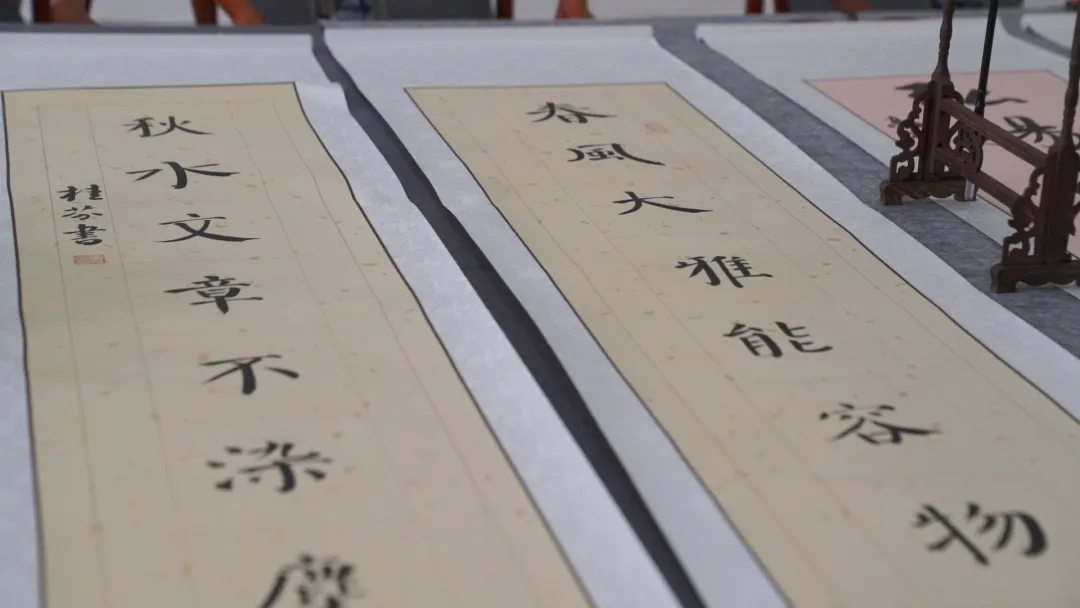 春風大雅能容物
秋水文章不染塵
桂芬書